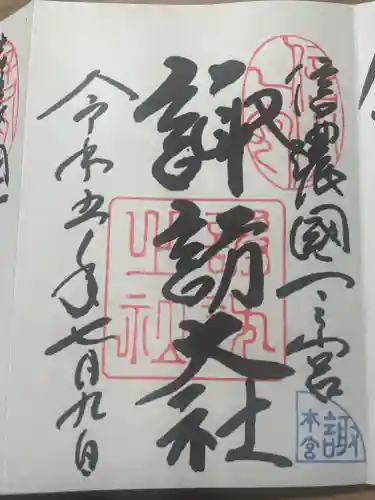 信濃國一之宮
諏訪大社
令和五年七月九日
諏
本宮